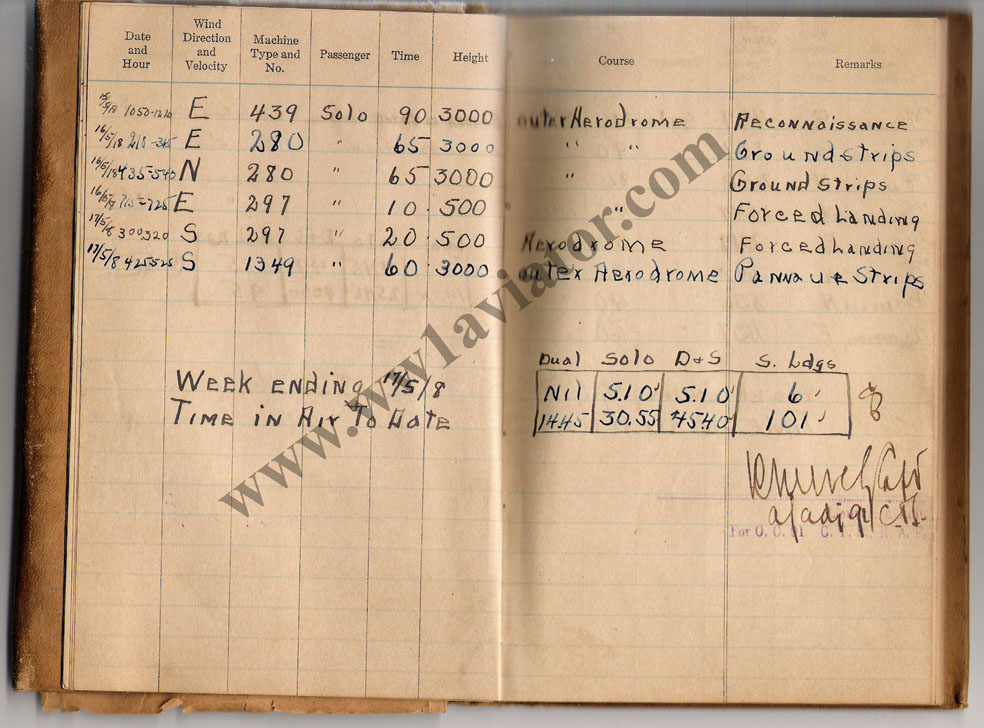 Date and Hour Wind Direction and Velocity Machine Type and No. Passenger Time Height Course Remarks
1050-1220 E 439 Solo 90 3000 outer Aerodrome Reconnaissance
16/5/18 210-315 E 280 " 65 3000 " " Groundstrips
16/5/18 435-540 N 280 " 65 3000 " Ground Strips
16/5/18 715-725 E 297 " 10 500 " Forced Landing
17/5/8 300320 S 297 " 20 500 Aerodrome Forced Landing
17/5/8 425525 S 1349 " 60 3000 outer Aerodrome Strips
Dual Solo D&S S. Ldgs
Week ending 17/5/8 Nil 5.10' 5.10' 6'
Time in Air To Date 14.45 30.55 45.40 101'
For O. C. 81 C.
www.ww1aviator.com